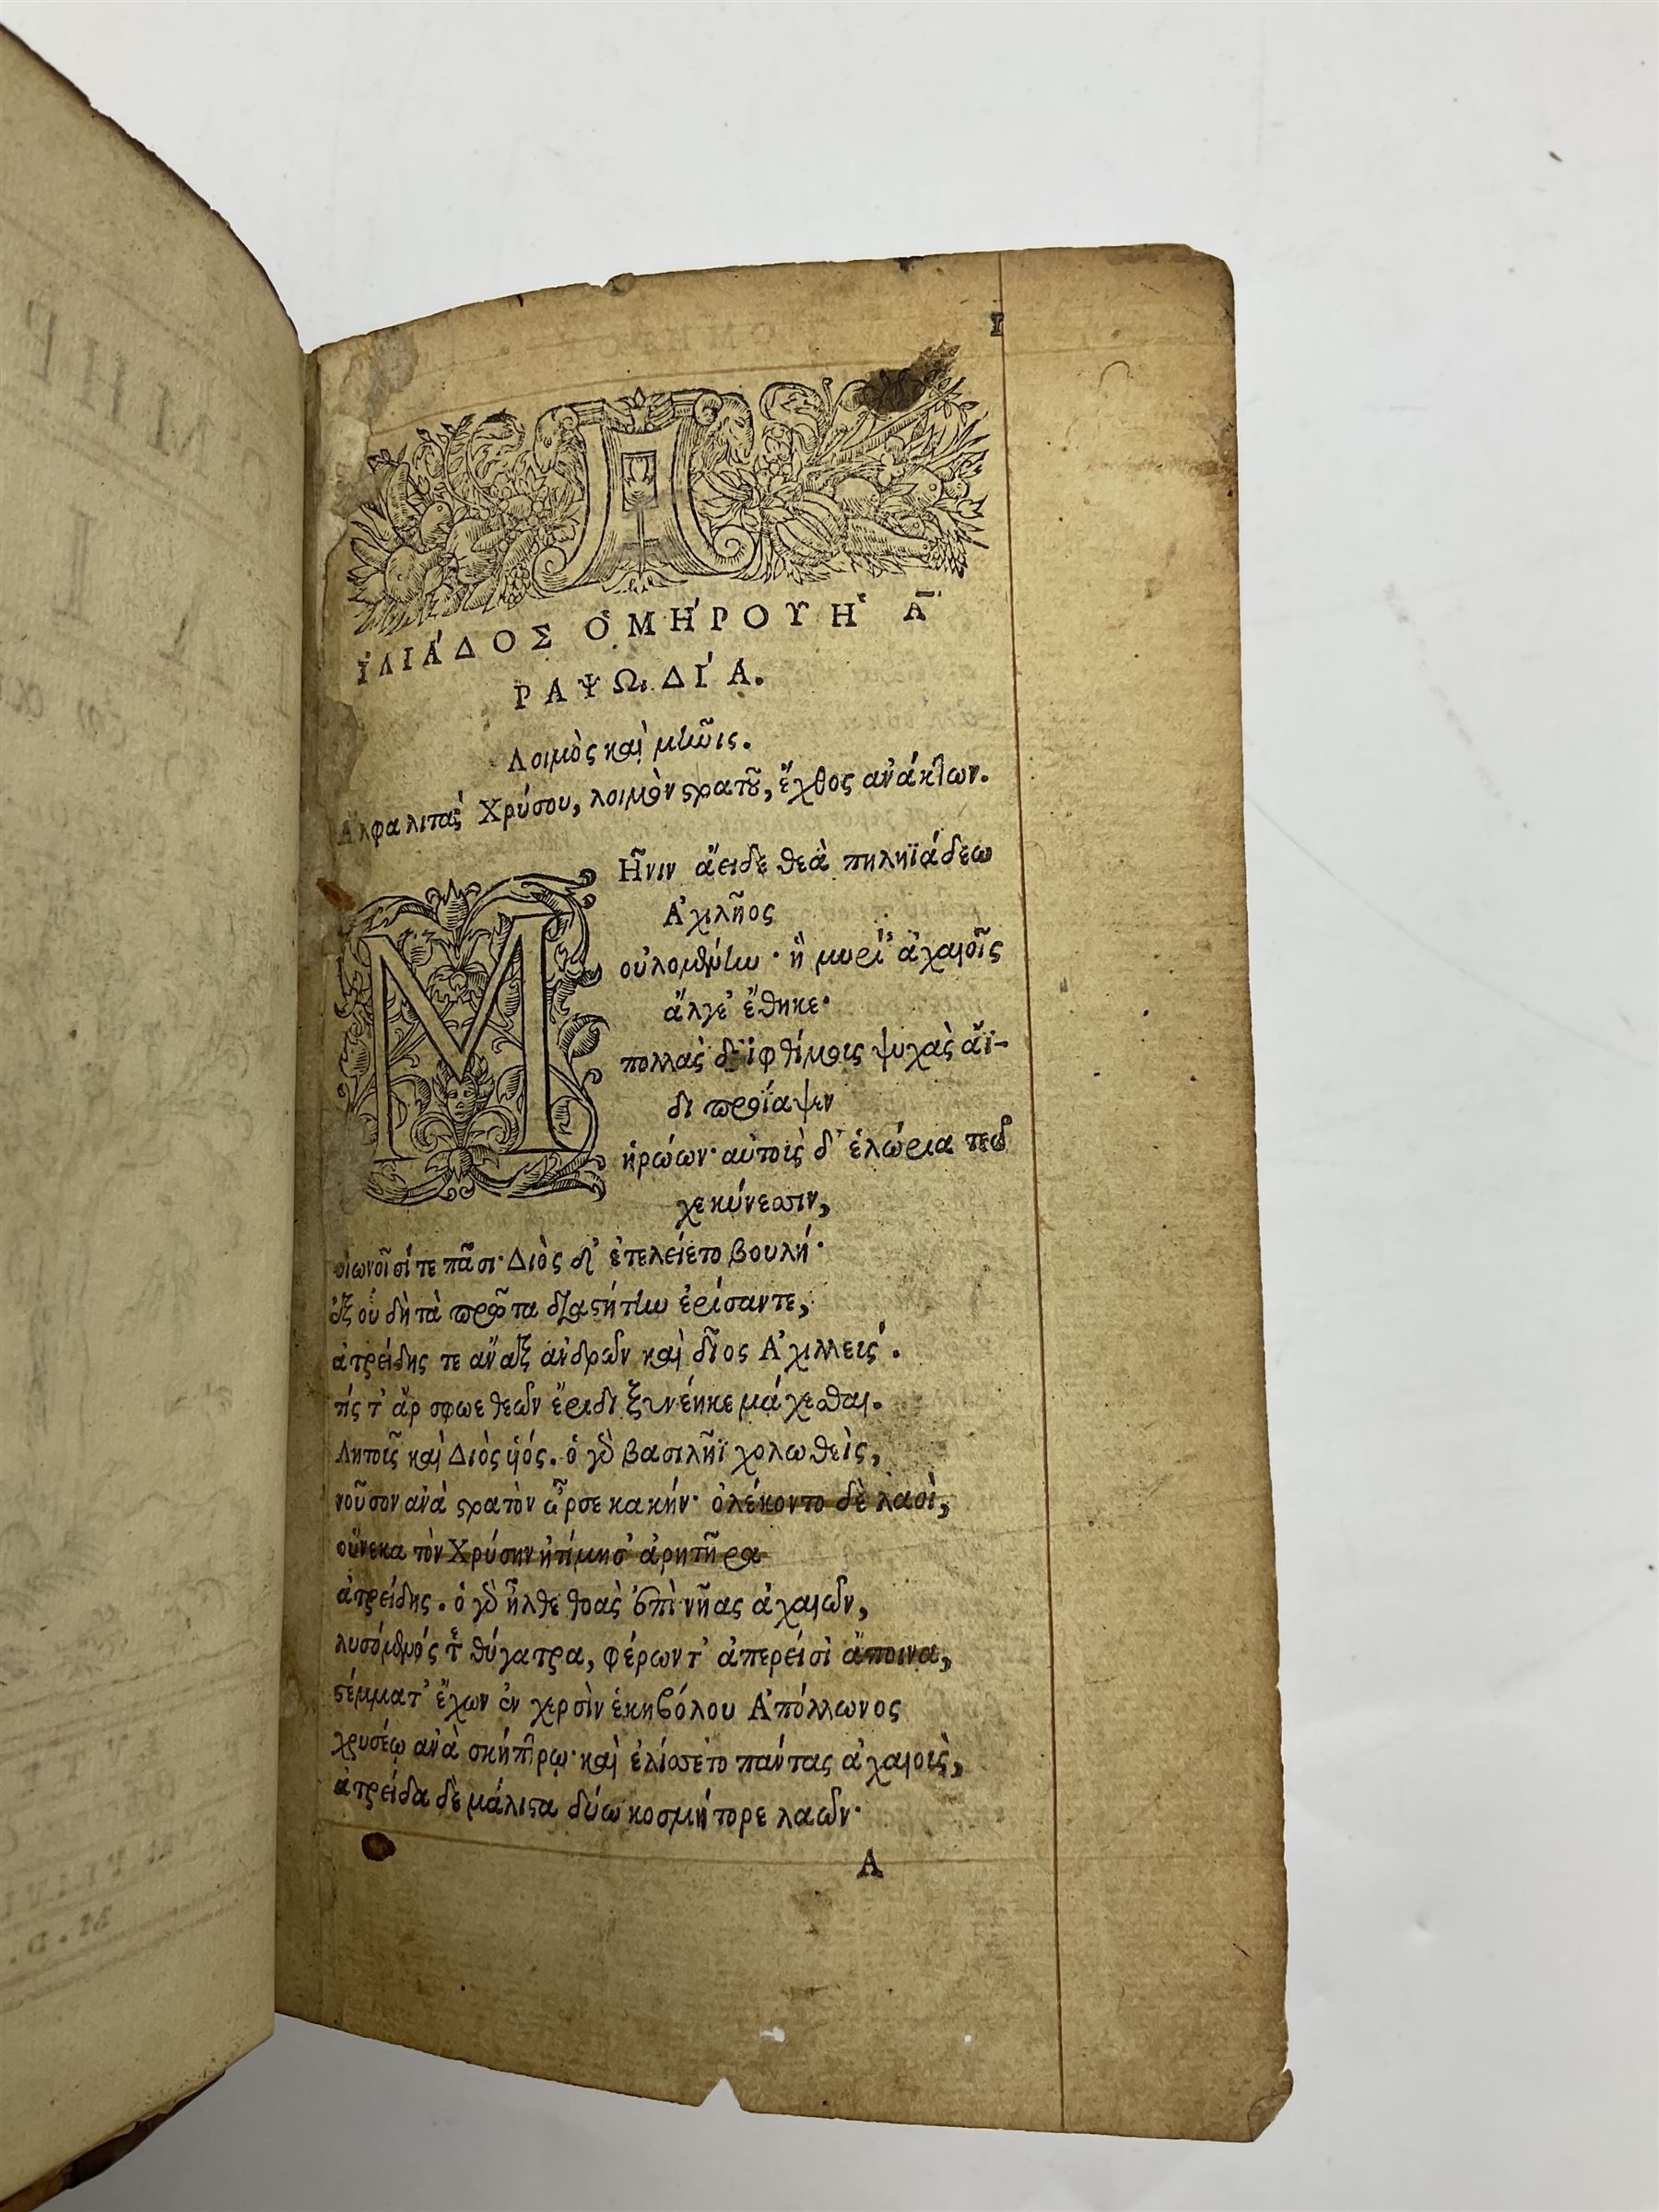 1
ἸΛΙΆΔΟΣ ὉΜΉΡΟΥ Ἡ Ᾱ
ΡΑΨΩΔΊΑ.
Λοιμὸς καὶ μῆνις.
Ἄλφα λιτὰς Χρύσου, λοιμὸν στρατοῦ, ἔχθος ἀνάκτων.
ΜΗ͂νιν ἄειδε θεὰ πηληϊάδεω
Ἀχιλῆος
οὐλομένην· ἣ μυρί' ἀχαιοῖς
ἄλγε' ἔθηκε·
πολλὰς δ' ἰφθίμοις ψυχὰς ἄϊ-
δι προΐαψεν
ἡρώων· αὐτοὺς δ' ἑλώρια τεῦ
χε κύνεσσιν,
οἰωνοῖσί τε πᾶσι· Διὸς δ' ἐτελείετο βουλή·
ἐξ οὗ δὴ τὰ πρῶτα διαστήτην ἐρίσαντε,
ἀτρείδης τε ἄναξ ἀνδρῶν καὶ δῖος Ἀχιλλεύς.
τίς τ' ἄρ σφωε θεῶν ἔριδι ξυνέηκε μάχεσθαι.
Λητοῦς καὶ Διὸς ὑός. ὁ γὰρ βασιλῆϊ χολωθεὶς,
νοῦσον ἀνὰ στρατὸν ὦρσε κακήν· ὀλέκοντο δὲ λαοὶ,
οὕνεκα τὸν Χρύσην ἠτίμησ' ἀρητῆρα
ἀτρείδης. ὁ γὰρ ἦλθε θοὰς ἐπὶ νῆας ἀχαιῶν,
λυσόμενός τε θύγατρα, φέρων τ' ἀπερείσι' ἄποινα,
στέμματ' ἔχων ἐν χερσὶν ἑκηβόλου Ἀπόλλωνος
χρυσέῳ ἀνὰ σκήπτρῳ· καὶ ἐλίσσετο πάντας ἀχαιοὺς,
ἀτρείδα δὲ μάλιστα δύω κοσμήτορε λαῶν·
A